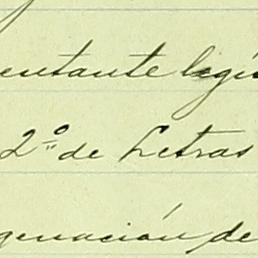 entante legí
2º de Letras
genación de